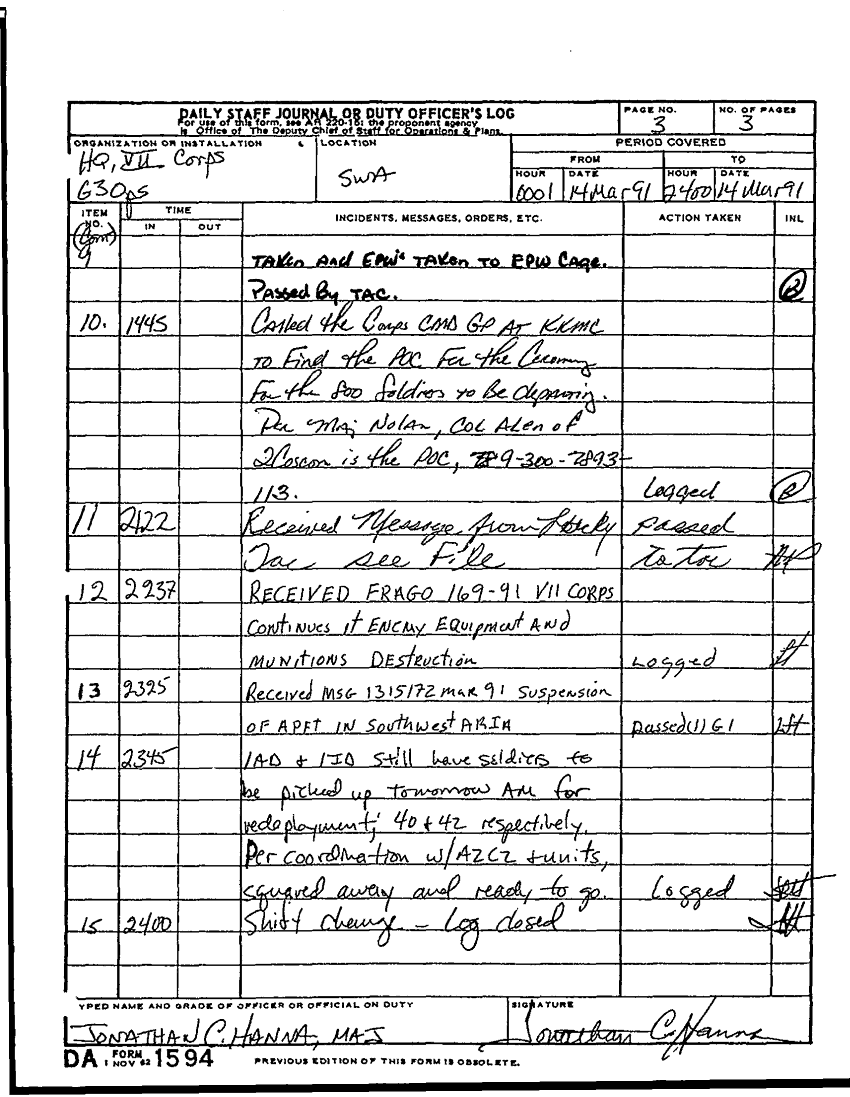 DAILY STAFF JOURNAL OR DUTY OFFICER'S LOG
For use of this form, see AR 220-15; the proponent agency
is Office of The Deputy Chief of Staff for Operations & Plans.
PAGE NO.
3
NO. OF PAGES
3
ORGANIZATION OR INSTALLATION
HQ, VII Corps
G3 Ops
LOCATION
SWA
PERIOD COVERED
FROM
TO
HOUR
DATE
HOUR
DATE
0001
14 Mar 91
2400
14 Mar 91
ITEM NO.
TIME
IN
OUT
INCIDENTS, MESSAGES, ORDERS, ETC.
ACTION TAKEN
INL
(Cont)
9
TAKEN AND EPW's TAKEN TO EPW CAGE.
Passed By TAC.
10. 1445 Called the Corps CMD GP AT KKMC
to Find the POC For the Ceremony
For the 800 Soldiers to Be departing.
Per Maj Nolan, COL Alen of
2Coscom is the POC, 9-300-7893-
113. Logged
11 2122 Received Message from Tac see File
passed to toc
12 2237 RECEIVED FRAGO 169-91 VII CORPS
CONTINUES IT ENEMY EQUIPMENT AND
MUNITIONS DESTRUCTION Logged
13 2325 Received MSG 131517Z MAR 91 Suspension
OF APFT IN Southwest ARIA passed (1) G1
14 2345 1AD & 1ID still have soldiers to
be picked up tomorrow AM for
redeployment; 40 & 42 respectively.
Per coordination w/A2C2 & units,
squared away and ready to go. Logged
15 2400 Shift change - Log closed
TYPED NAME AND GRADE OF OFFICER OR OFFICIAL ON DUTY
JONATHAN C. HANNA, MAJ
SIGNATURE
Jonathan C. Hanna
DA FORM 1 NOV 62 1594
PREVIOUS EDITION OF THIS FORM IS OBSOLETE.